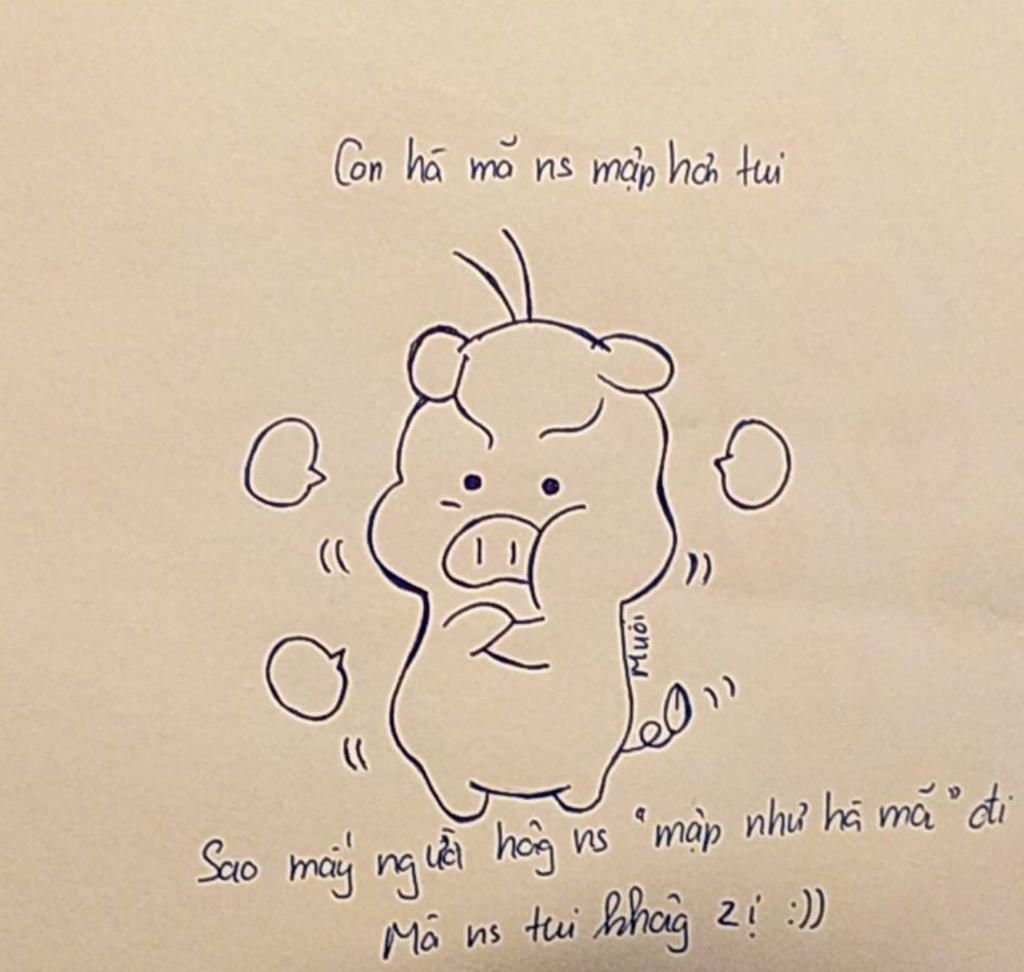 Con hà mã ns mập hơn tui
Muối
Sao mấy người hông ns "mập như hà mã" đi
Mà ns tui khôg zị :))